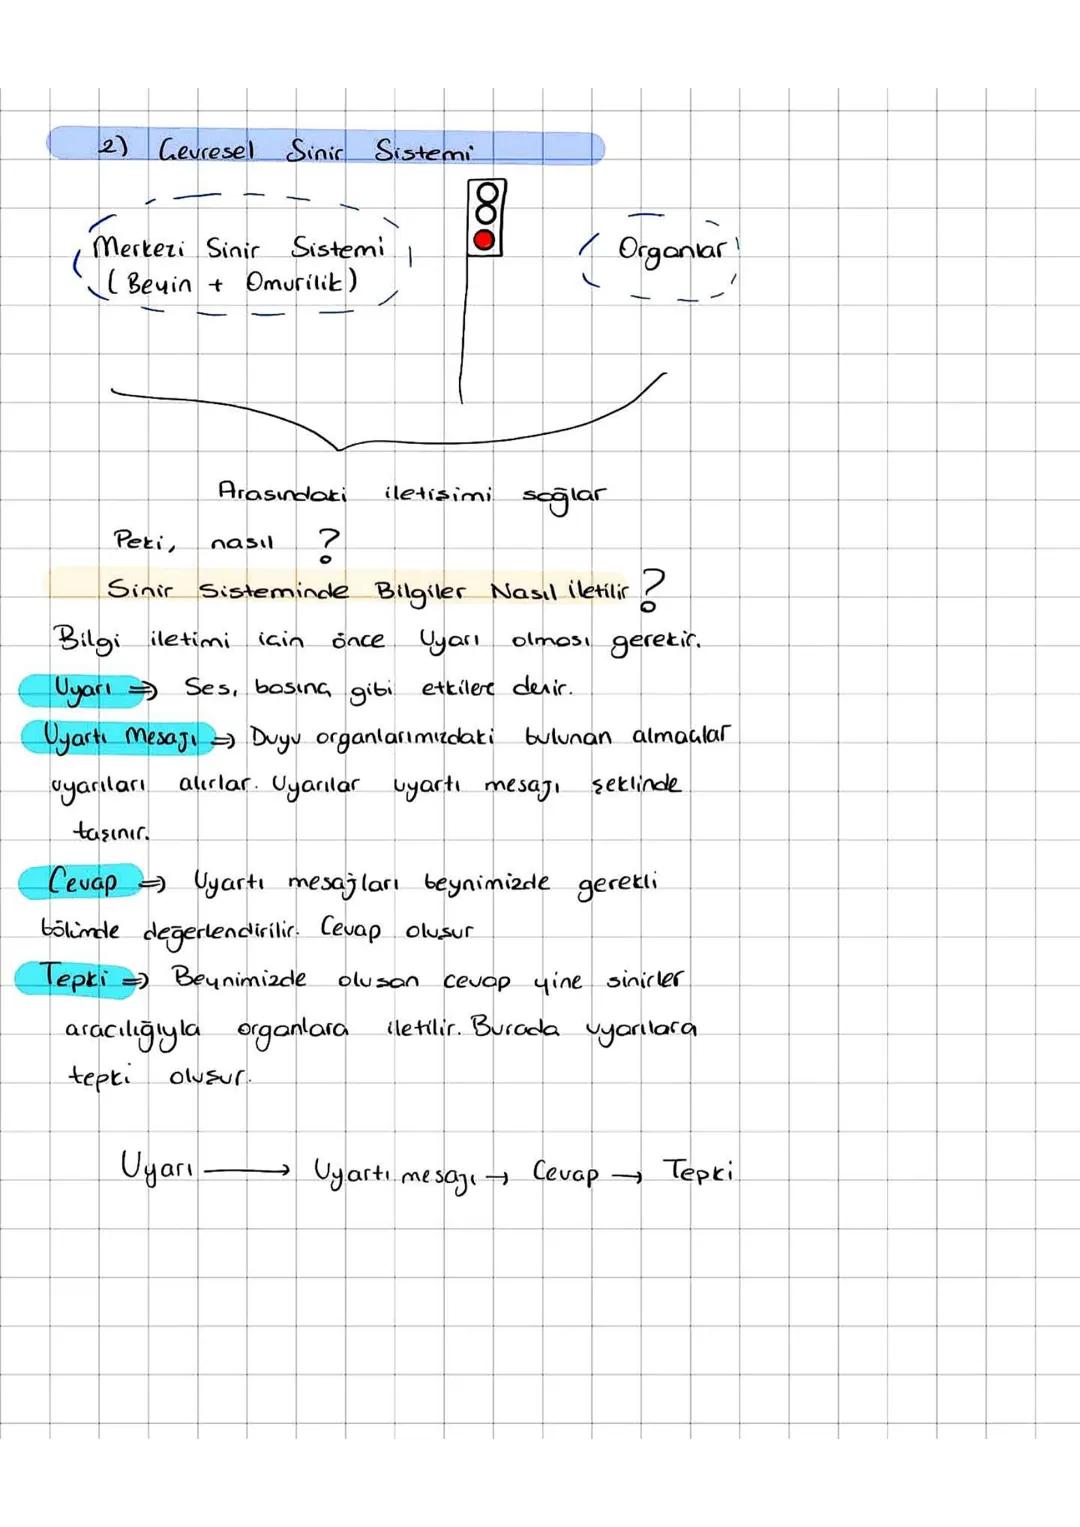 2) Çevresel Sinir Sistemi
Merkezi Sinir Sistemi
(Beyin + Omurilik)
Organlar
Arasındaki iletişimi sağlar
Peki, nasıl ?
Sinir Sisteminde Bilgiler Nasıl iletilir ?
Bilgi iletimi için önce Uyarı olması gerekir.
Uyarı ⇒ Ses, basınç gibi etkilere denir.
Uyartı Mesajı ⇒ Duyu organlarımızdaki bulunan almaçlar
uyarıları alırlar. Uyarılar uyartı mesajı şeklinde
taşınır.
Cevap ⇒ Uyartı mesajları beynimizde gerekli
bölümde değerlendirilir. Cevap oluşur
Tepki ⇒ Beynimizde oluşan cevap yine sinirler
aracılığıyla organlara iletilir. Burada uyarılara
tepki oluşur.
Uyarı → Uyartı mesajı → Cevap → Tepki